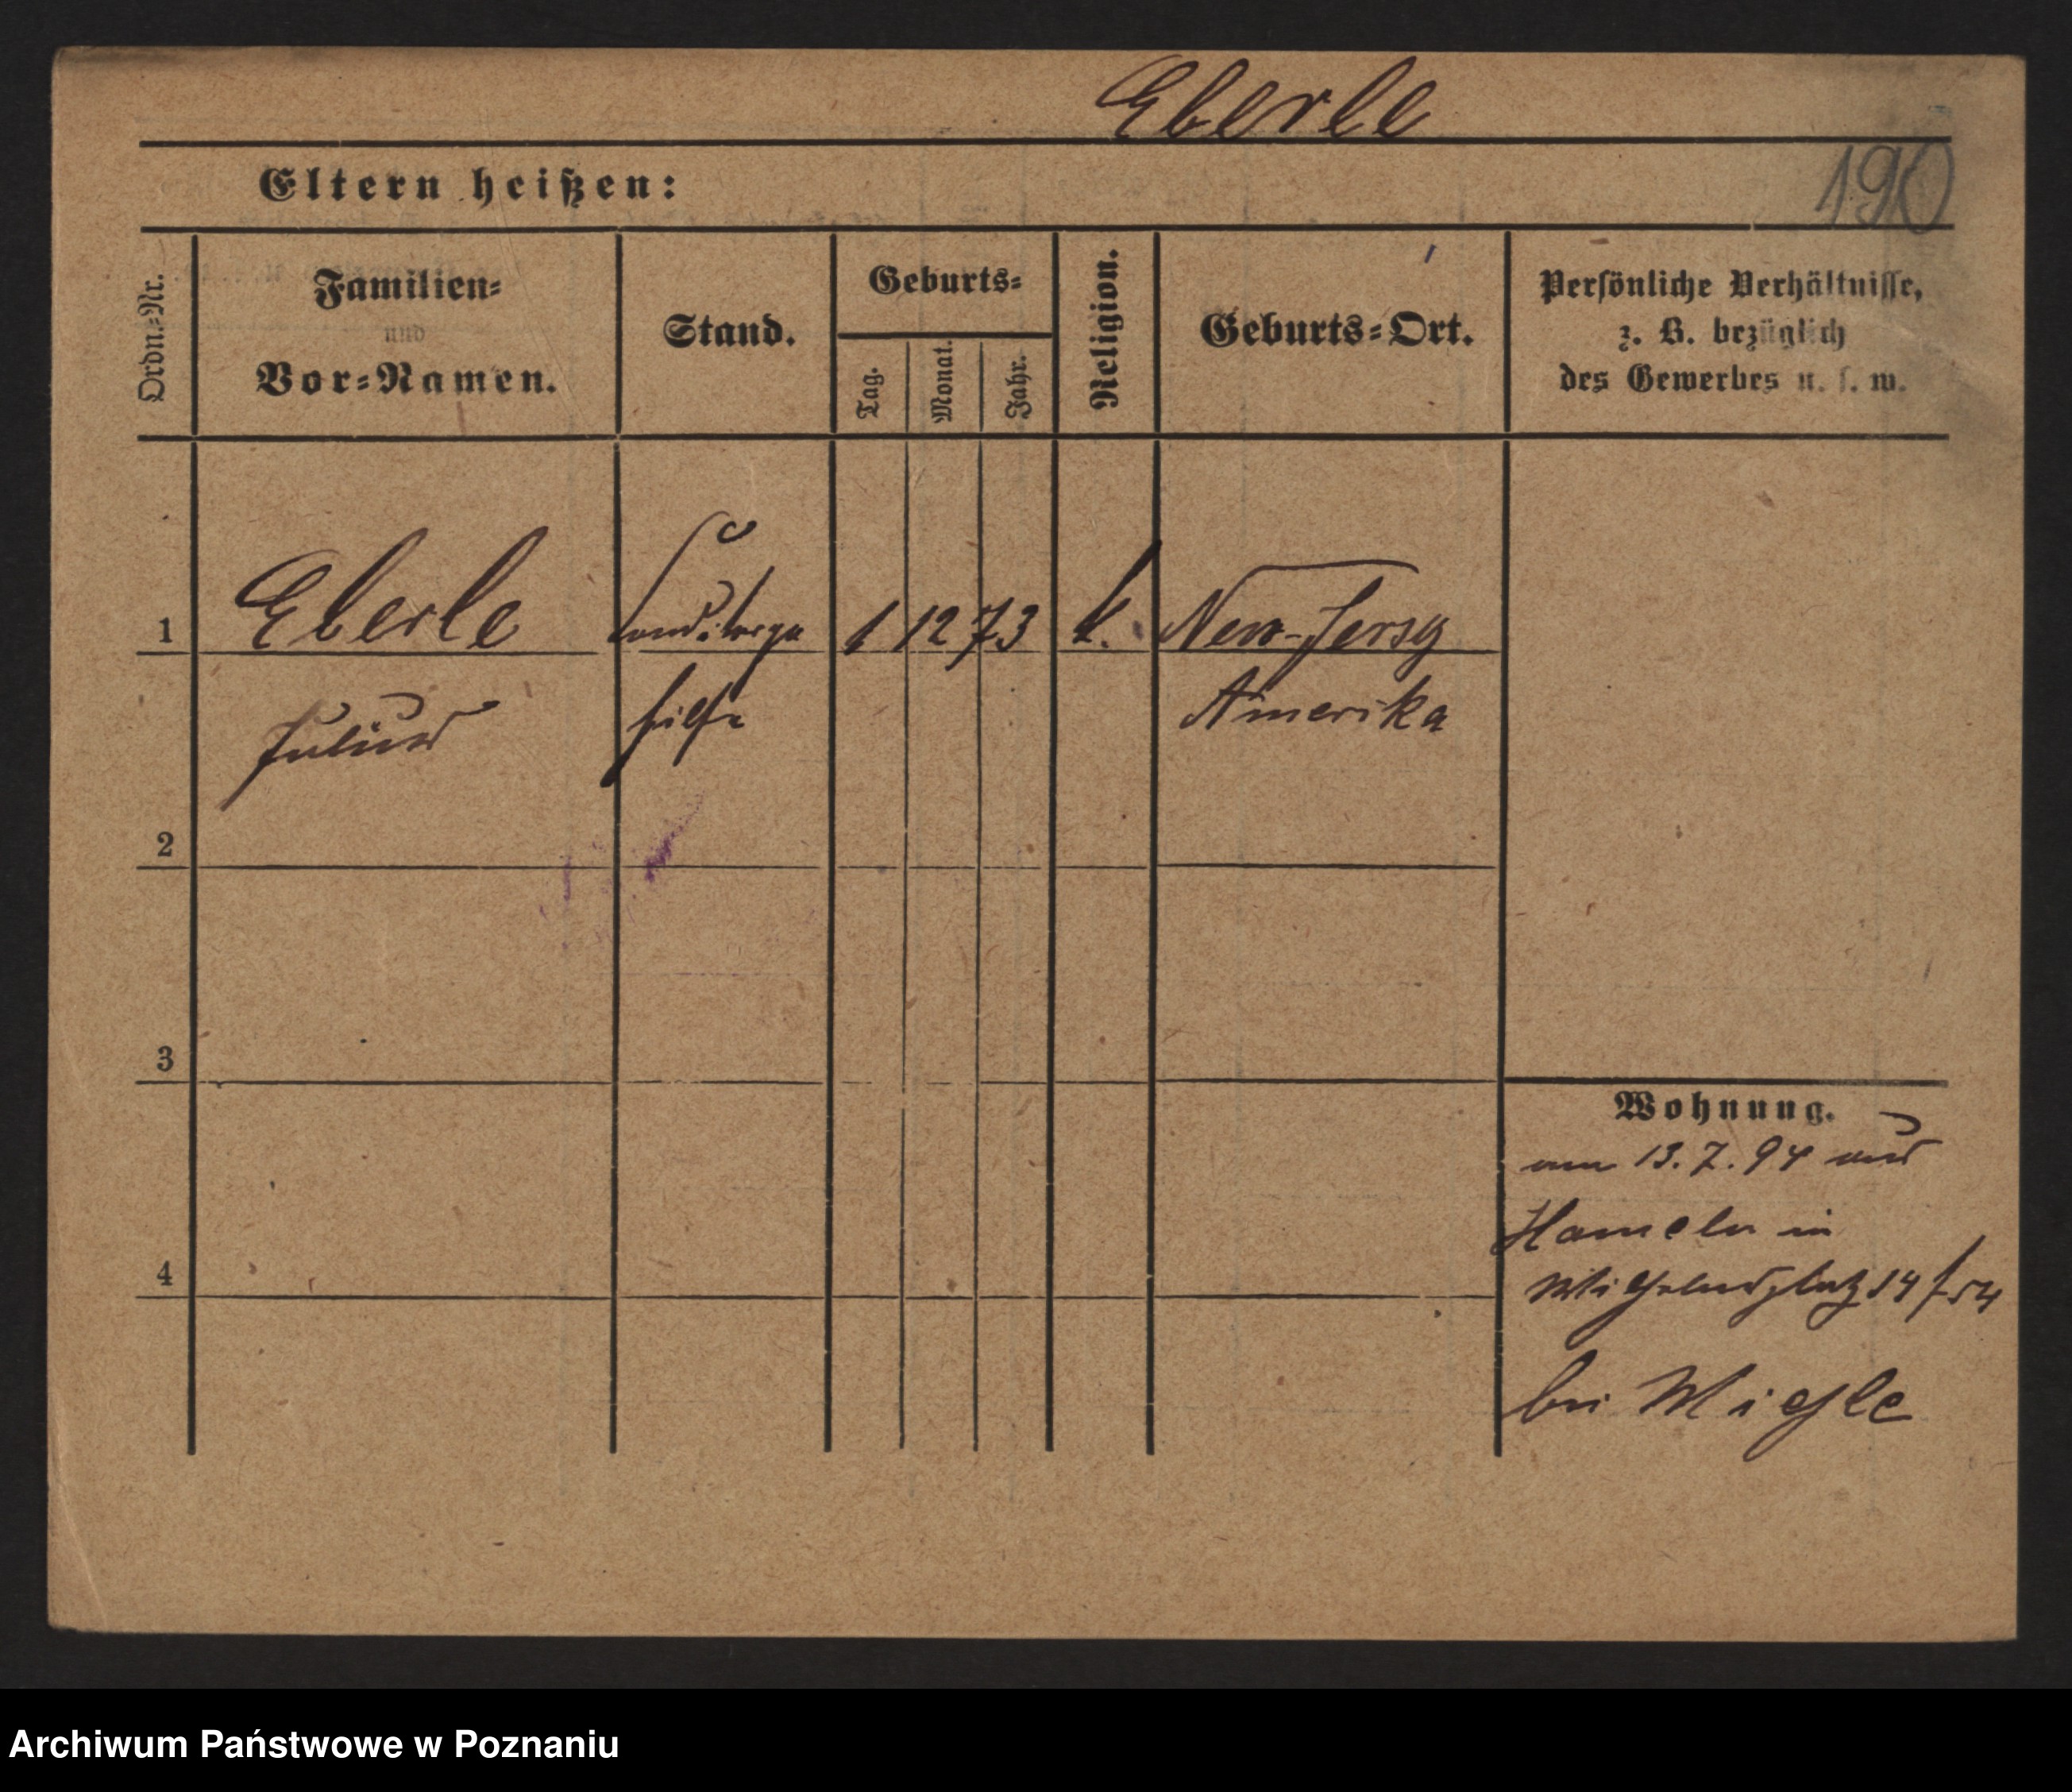 Eberle
190
Eltern heißen:
Ordn.=Nr.
Familien=
und
Vor=Namen.
Stand.
Geburts=
Tag.
Monat.
Jahr.
Religion.
Geburts=Ort.
Persönliche Verhältnisse,
z. B. bezüglich
des Gewerbes u. s. w.
1
Eberle
1 12 73
k.
New-Jersy
Julius
Amerika
2
3
4
Wohnung.
am 13. 7. 94 aus
Hameln in
Wilhelmsplatz 14
bei Miehle
Archiwum Państwowe w Poznaniu